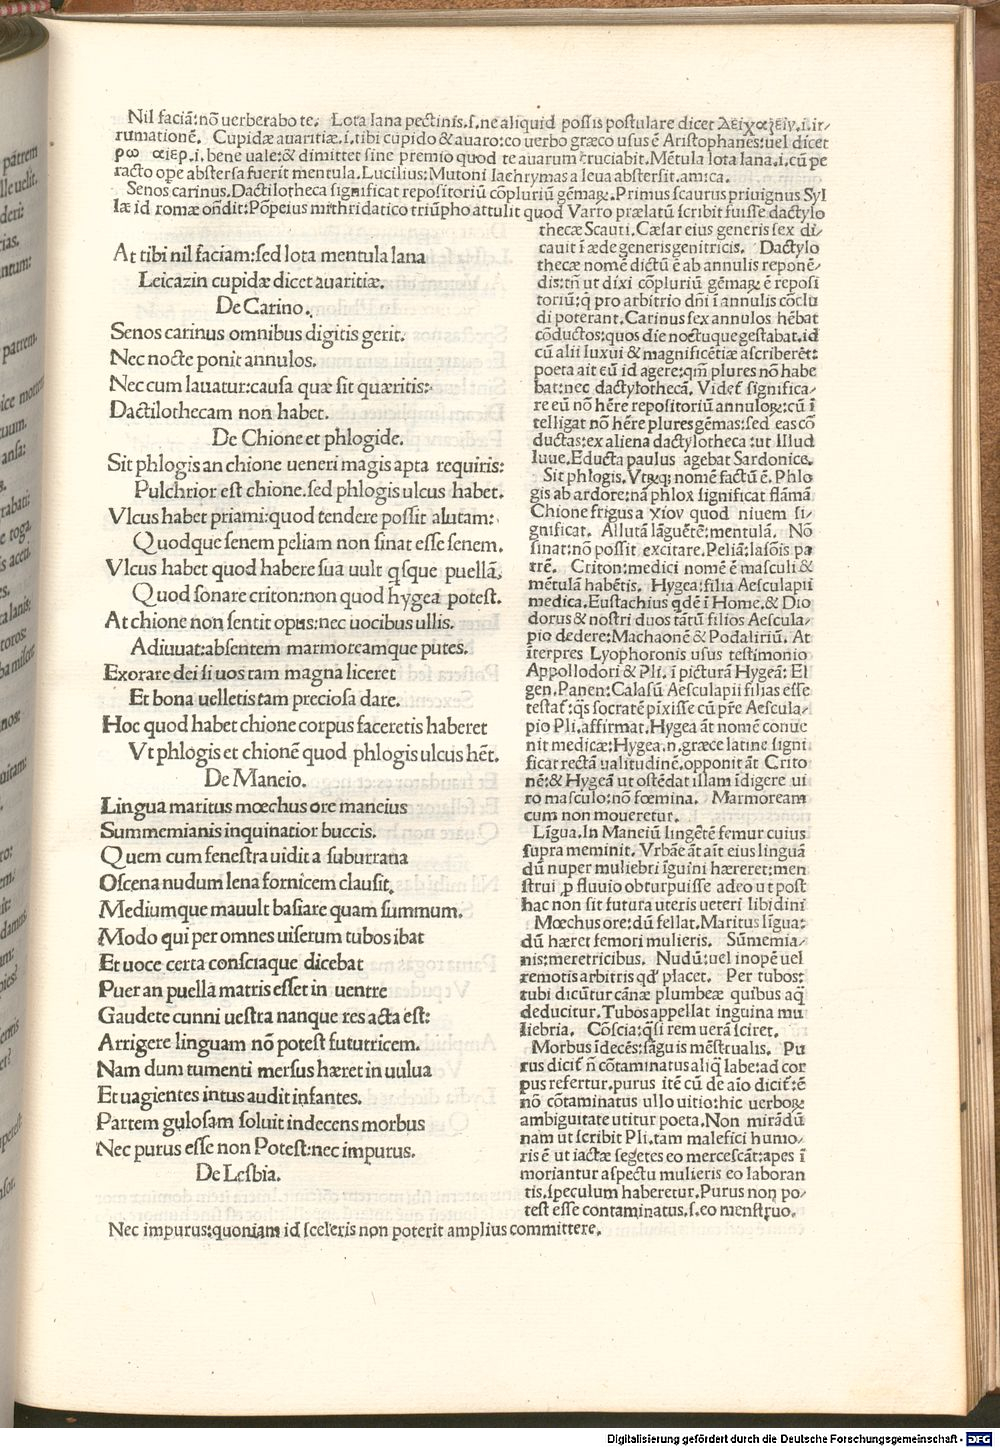 Nil faciã:nõ uerberabo te. Lota lana pectinis.ſ.ne aliquid poſſis poſtulare dicet λειχαζειν.i.ir-
rumationẽ. Cupidæ auaritiæ.i.tibi cupido & auaro:eo uerbo græco uſus ẽ Ariſtophanes:uel dicet
ρω αιερ.i.bene uale:& dimittet ſine premio quod te auarum cruciabit.Mẽtula lota lana.i.cũ pe
racto ope abſterſa fuerit mentula.Lucilius:Mutoni lachrymas a leua abſterſit.amica.
Senos carinus.Dactilotheca ſignificat repoſitoriũ cõpluriũ gẽmaꝝ.Primus ſcaurus priuignus Syl
læ id romæ oñdit:Põpeius mithridatico triũpho attulit quod Varro prælatũ ſcribit fuiſſe dactylo
thecæ Scauri.Cæſar eius generis ſex di-
cauit ĩ æde generis genitricis. Dactylo
thecæ nomẽ dictũ ẽ ab annulis reponẽ-
dis:tñ ut dixi cõpluriũ gẽmaꝝ ẽ repoſi
toriũ:q̃ pro arbitrio dñi ĩ annulis cõclu
di poterant.Carinus ſex annulos hẽbat
cõductos:quos die noctuque geſtabat.id
cũ alii luxui & magnificẽtiæ aſcriberẽt:
poeta ait eũ id agere:qm̃ plures nõ habe
bat:nec dactylothecã. Videt̃ ſignifica-
re eũ nõ hẽre repoſitoriũ annuloꝝ:cũ ĩ
telligat nõ hẽre plures gẽmas:ſed eas cõ
ductas:ex aliena dactylotheca :ut Illud
Iuue.Educta paulus agebat Sardonice.
Sit phlogis.Vtrꝗꝫ nomẽ factũ ẽ.Phlo
gis ab ardore:nã phlox ſignificat flãmã
Chione frigus a χιον quod niuem ſi-
gnificat. Allutã lãguẽtẽ:mentulã. Nõ
ſinat:nõ poſſit excitare.Peliã:Iaſõis pa
trẽ. Criton:medici nomẽ ẽ maſculi &
mẽtulã habẽtis. Hygea:filia Aeſculapii
medica.Euſtachius qdẽ ĩ Home.& Dio
dorus & noſtri duos tãtũ filios Aeſcula-
pio dedere:Machaonẽ & Podaliriũ. At
ĩterpres Lyophoronis uſus teſtimonio
Appollodori & Pli. ĩ picturã Hygeã: El
gen.Panen:Calaſũ Aeſculapii filias eſſe
teſtat̃:q̃s ſocratẽ pixiſſe cũ pr̃e Aeſcula-
pio Pli.affirmat.Hygea ãt nomẽ conue
nit medicæ:Hygea.n.græce latine ſigni
ficat rectã ualitudinẽ.opponit ãt Crito
nẽ:& Hygeã ut oſtẽdat illam ĩdigere ui
ro maſculo:nõ fœmina. Marmoream
cum non moueretur.
Lĩgua.In Maneiũ lingẽtẽ femur cuius
ſupra meminit. Vrbãe ãt ait eius linguã
dũ nuper muliebri ĩguini hæreret:men
ſtrui ꝓ fluuio obturpuiſſe adeo ut poſt
hac non ſit futura uteris ueteri libidini
Mœchus ore:dũ fellat.Maritus lĩgua:
dũ hæret femori mulieris. Sũmemia-
nis:meretricibus. Nudũ:uel inopẽ uel
remotis arbitris qđ placet. Per tubos:
tubi dicũtur cãnæ plumbeæ quibus aq̃
deducitur.Tubos appellat inguina mu
liebria. Cõſcia:q̃ſi rem uerã ſciret.
Morbus ĩdecẽs:ſãguis mẽſtrualis. Pu
rus dicit̃ ñ cõtaminatus aliq̃ labe:ad cor
pus refertur.purus itẽ cũ de aĩo dicit̃:ẽ
nõ cõtaminatus ullo uitio:hic uerboꝝ
ambiguitate utitur poeta.Non mirãdũ
nam ut ſcribit Pli.tam malefici humo-
ris ẽ ut iactæ ſegetes eo merceſcãt:apes ĩ
moriantur aſpectu mulieris eo laboran
tis.ſpeculum haberetur.Purus non po-
teſt eſſe contaminatus.ſ.eo menſtruo.
Nec impurus:quoniam id ſceleris non poterit amplius committere.
At tibi nil faciam:ſed lota mentula lana
Leicazin cupidæ dicet auaritiæ.
De Carino.
Senos carinus omnibus digitis gerit.
Nec nocte ponit annulos.
Nec cum lauatur:cauſa quæ ſit quæritis:
Dactilothecam non habet.
De Chione et phlogide.
Sit phlogis an chione ueneri magis apta requiris:
Pulchrior eſt chione.ſed phlogis ulcus habet.
Vlcus habet priami:quod tendere poſſit alutam:
Quodque ſenem peliam non ſinat eſſe ſenem.
Vlcus habet quod habere ſuã uult qſque puellã.
Quod ſonare criton:non quod hygea poteſt.
At chione non ſentit opus:nec uocibus ullis.
Adiuuat:abſentem marmoreamque putes.
Exorare dei ſi uos tam magna liceret
Et bona uelletis tam precioſa dare.
Hoc quod habet chione corpus faceretis haberet
Vt phlogis et chionẽ quod phlogis ulcus hẽt.
De Maneio.
Lingua maritus mœchus ore maneius
Summemianis inquinatior buccis.
Quem cum feneſtra uidit a ſuburrana
Oſcena nudum lena fornicem clauſit.
Mediumque mauult baſiare quam ſummum.
Modo qui per omnes uiſerum tubos ibat
Et uoce certa conſciaque dicebat
Puer an puella matris eſſet in uentre
Gaudete cunni ueſtra nanque res acta eſt:
Arrigere linguam nõ poteſt fututricem.
Nam dum tumenti merſus hæret in uulua
Et uagientes intus audit infantes.
Partem guloſam ſoluit indecens morbus
Nec purus eſſe non Poteſt:nec impurus.
De Leſbia.
Digitalisierung gefördert durch die Deutsche Forschungsgemeinschaft - DFG